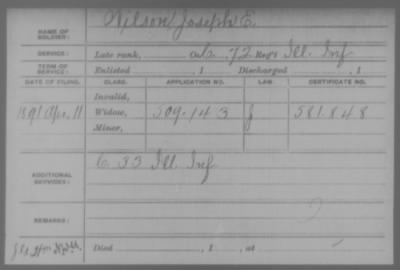 NAME OF SOLDIER: Wilson, Joseph E.
SERVICE: Late rank, Co. C, 72 Reg't Ill. Inf
TERM OF SERVICE: Enlisted , 1 Discharged , 1
DATE OF FILING. CLASS. APPLICATION NO. LAW. CERTIFICATE NO.
Invalid,
1891 Apr. 11 Widow, 509.143 J 581.848
Minor,
ADDITIONAL SERVICES: C 33 Ill. Inf
REMARKS:
Died , 1 , at